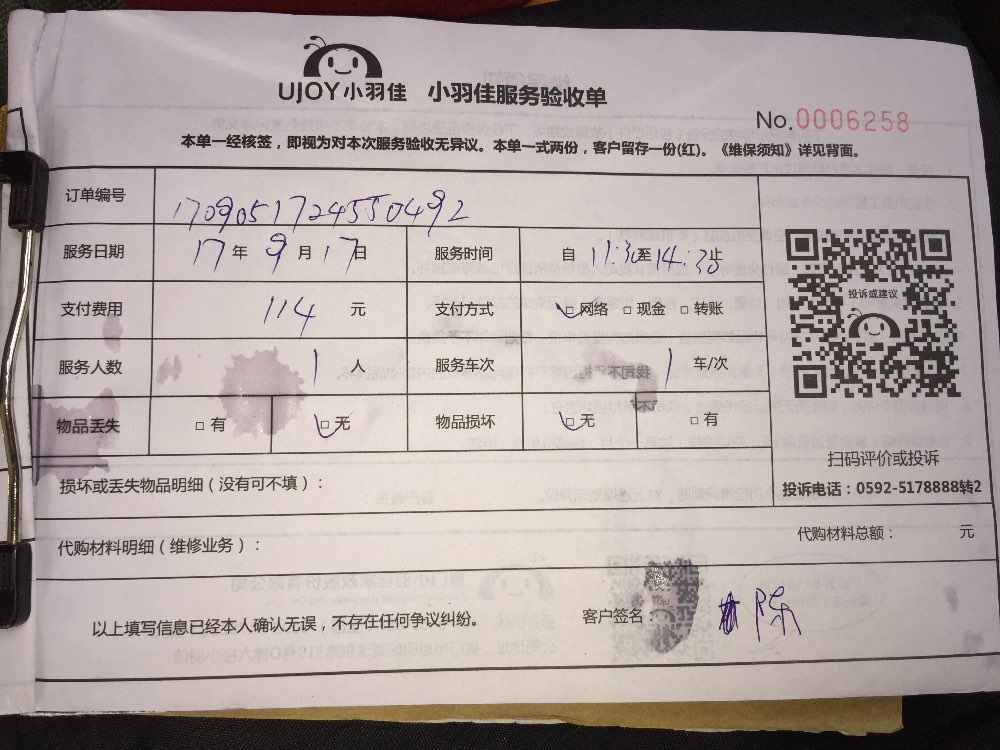 UJOY小羽佳 小羽佳服务验收单
No.0006258
本单一经核签，即视为对本次服务验收无异议。本单一式两份，客户留存一份(红)。《维保须知》详见背面。
订单编号 1709051724550492
服务日期 17年9月17日 服务时间 自11:30至14:30止
支付费用 114元 支付方式 □网络 □现金 □转账
服务人数 1人 服务车次 1车/次
物品丢失 □有 □无 物品损坏 □无 □有
投诉或建议
扫码评价或投诉
投诉电话：0592-5178888转2
损坏或丢失物品明细（没有可不填）：
代购材料明细（维修业务）： 代购材料总额： 元
以上填写信息已经本人确认无误，不存在任何争议纠纷。 客户签名： 陈